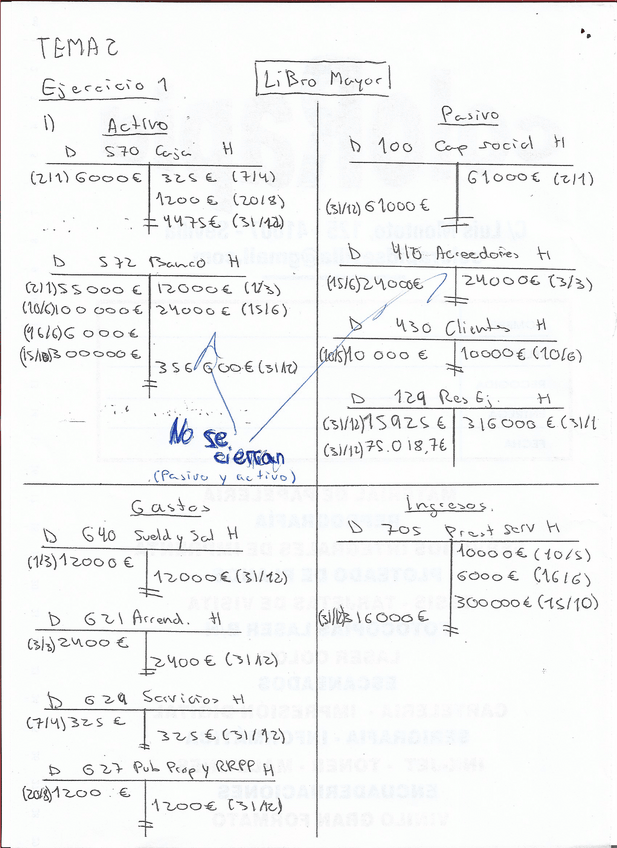 TEMA 2
Libro Mayor
Ejercicio 1
i) Activo
D 570 Caja H
(2/1) 6000€ 325€ (7/4)
1200€ (20/8)
4475€ (31/12)
D 572 Banco H
(2/1) 55000€ 12000€ (1/3)
(10/6) 100000€ 24000€ (15/6)
(16/6) 6000€
(15/10) 300000€
(31/12)
No se
cierran
(Pasivo y activo)
Pasivo
D 100 Cap social H
61000€ (2/1)
(31/12) 61000€
D 410 Acreedores H
(15/6) 24000€ 24000€ (3/3)
D 430 Clientes H
(10/5) 10000€ 10000€ (10/6)
D 129 Res Ej. H
(31/12) 15925€ 316000€ (31/1
(31/12) 75.018,7€
Gastos
D 640 Sueld y Sal H
(1/3) 12000€
12000€ (31/12)
D 621 Arrend. H
(3/3) 2400€
2400€ (31/12)
D 629 Servicios H
(7/4) 325€
325€ (31/12)
D 627 Pub Prop y RRPP H
(20/8) 1200€
1200€ (31/12)
Ingresos
D 705 Prest serv H
10000€ (10/5)
6000€ (16/6)
300000€ (15/10)
(31/12) 316000€